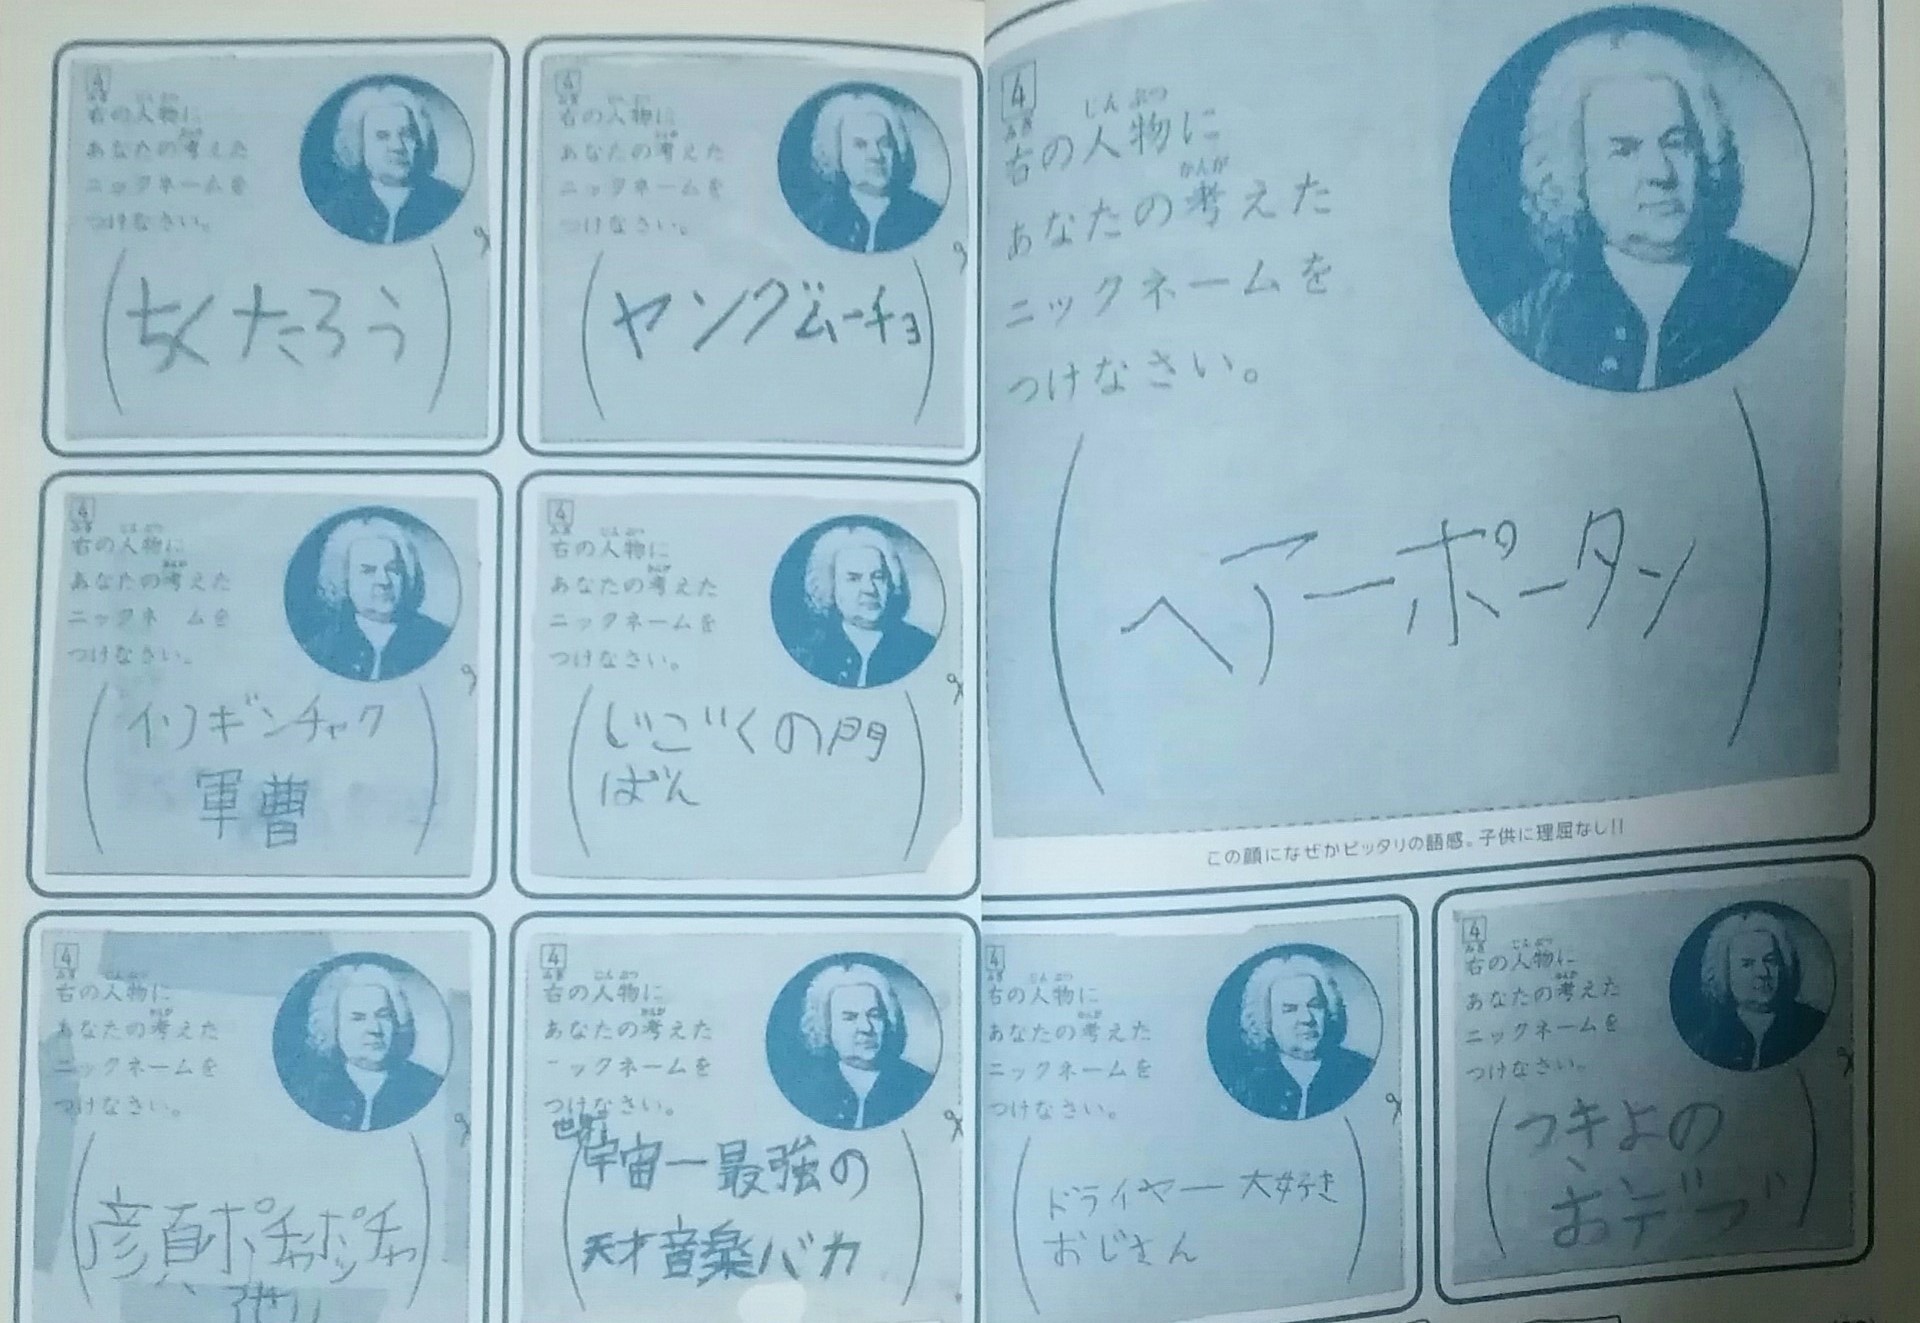 4
右の人物に
あなたの考えた
ニックネームを
つけなさい。
ちくたろう
4
右の人物に
あなたの考えた
ニックネームを
つけなさい。
ヤングムーチョ
4
みぎ じんぶつ
右の人物に
かんが
あなたの考えた
ニックネームを
つけなさい。
ヘアーポータン
この顔になぜかピッタリの語感。子供に理屈なし!!
4
右の人物に
あなたの考えた
ニックネ ムを
つけなさい。
イソギンチャク
軍曹
4
右の人物に
あなたの考えた
ニックネームを
つけなさい。
じごくの門
ばん
4
右の人物に
あなたの考えた
ニックネームを
つけなさい。
顔ポチャポッチャ
4
右の人物に
あなたの考えた
ックネームを
つけなさい。
宇宙一最強の
天才音楽バカ
4
右の人物に
あなたの考えた
ニックネームを
つけなさい。
ドライヤー大好き
おじさん
4
右の人物に
あなたの考えた
ニックネームを
つけなさい。
つきよの
おデブ